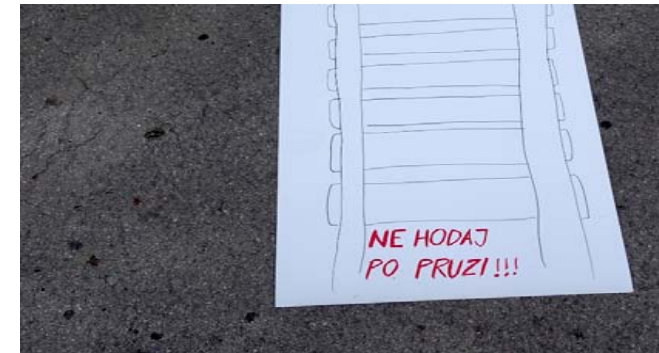 NE HODAJ
PO PRUZI!!!